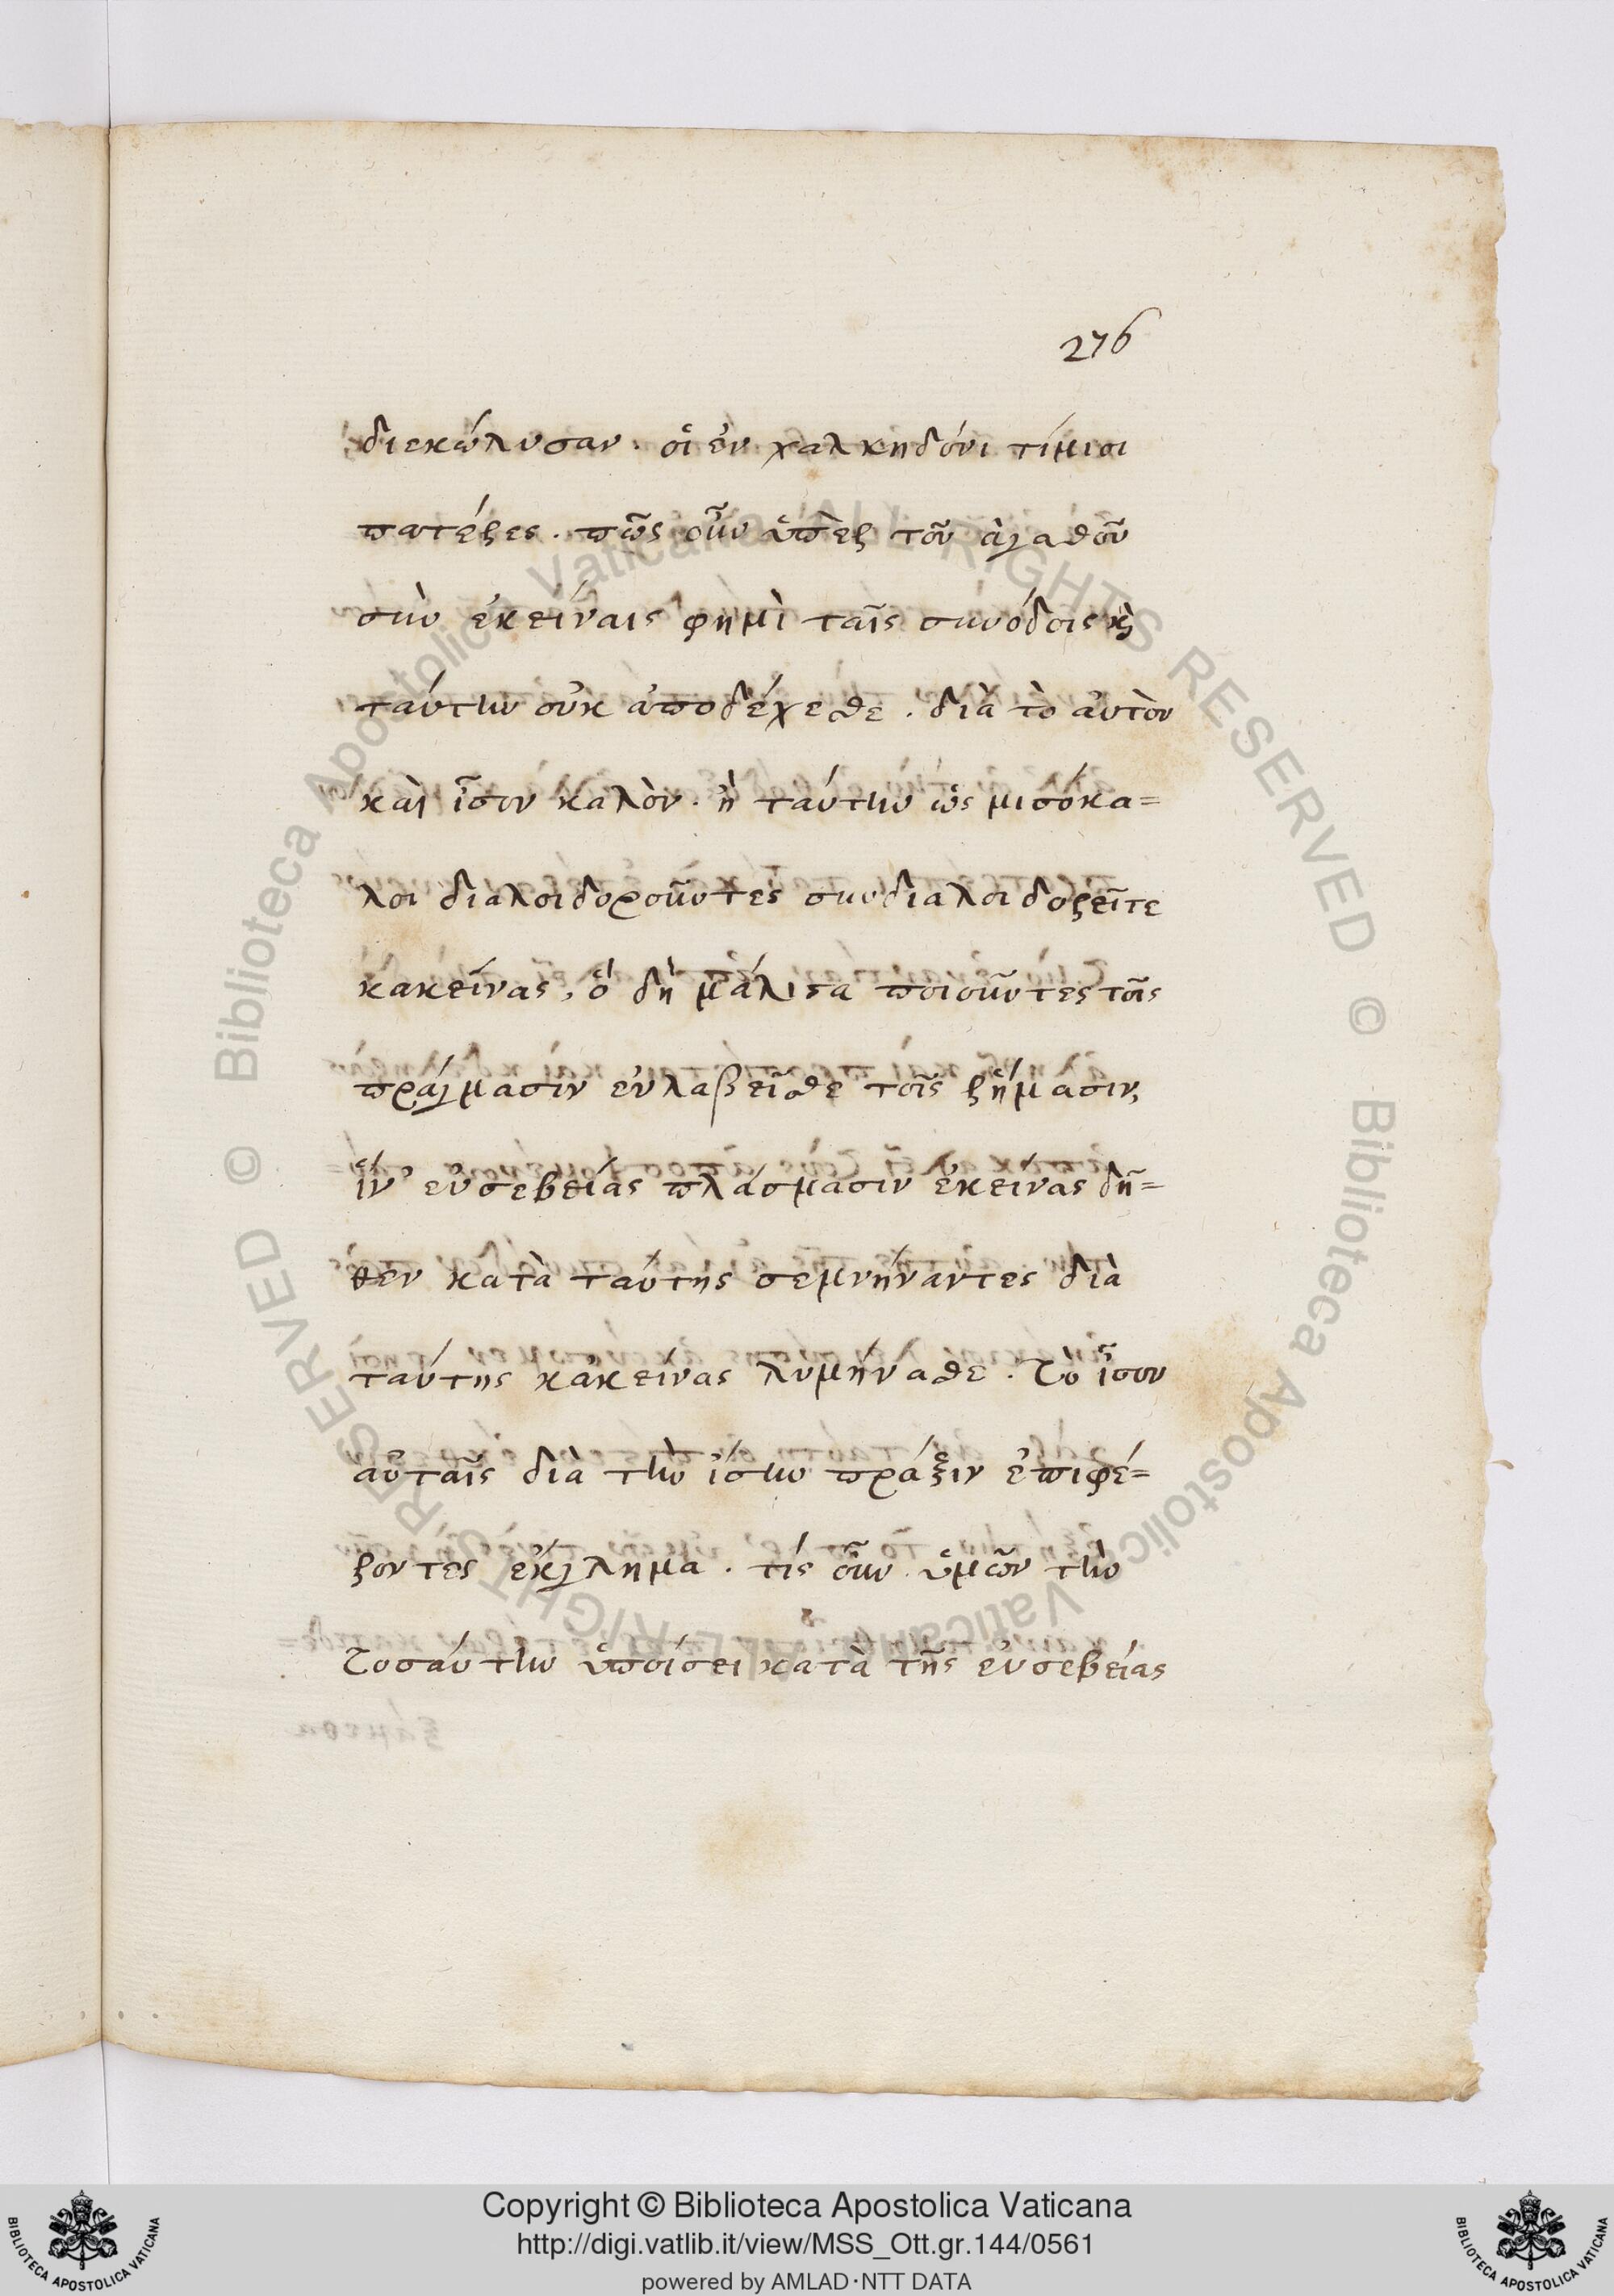 276
διεκώλυσαν. οἱ ἐν χαλκηδόνι τίμιοι
πατέρες. πῶς οὖν ὑπὲρ τοῦ ἀγαθοῦ
σὺν ἐκείναις φημὶ ταῖς συνόδοις κ̀
ταύτην οὐκ ἀποδέχεσθε. διὰ τὸ αὐτὸν
καὶ ἶσον καλὸν. ἢ ταύτην ὡς μισόκα=
λοι διαλοιδοροῦντες συνδιαλοιδορεῖτε
κακείνας, ὃ δὴ μάλιστα ποιοῦντες τοῖς
πράγμασιν εὐλαβεῖσθε τοῖς ῥήμασιν,
ἵν' εὐσεβείας πλάσμασιν ἐκείνας δῆ=
θεν κατὰ ταύτης σεμνήναντες διὰ
ταύτης κἀκείνας λυμήνασθε. τὸ ἶσον
αὐταῖς διὰ τὴν ἴσην πράξιν ἐπιφέ=
ροντες ἔκγλημα. τίς οὖν ὑμῶν τὴν
τοσαύτην ὑποίσει κατὰ τῆς εὐσεβείας
Copyright © Biblioteca Apostolica Vaticana
http://digi.vatlib.it/view/MSS_Ott.gr.144/0561
powered by AMLAD·NTT DATA
BIBLIOTECA APOSTOLICA VATICANA
BIBLIOTECA APOSTOLICA VATICANA
© Biblioteca Apostolica Vaticana ALL RIGHTS RESERVED
© Biblioteca Apostolica Vaticana ALL RIGHTS RESERVED